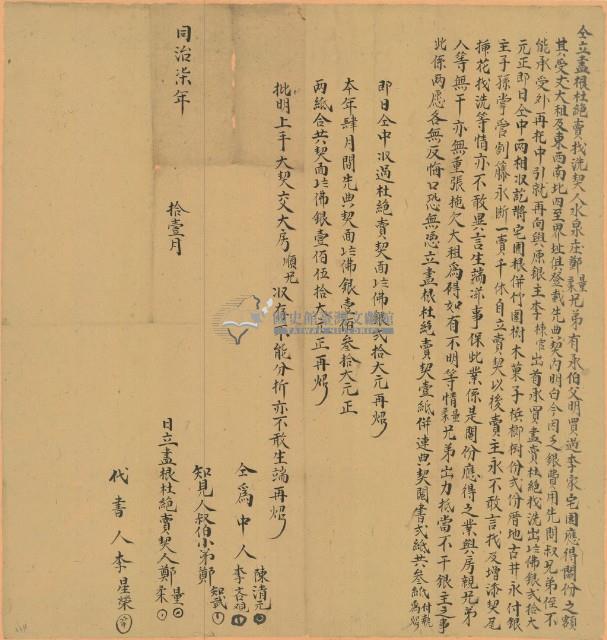 仝立盡根杜絕賣找洗契人水泉庄鄭量柔兄弟有承伯父明買過李家宅園應得鬮份之額
其受丈大租及東西南北四至界址俱登載先典契內明白今因乏銀費用先問叔兄弟侄不
能承受外再托中引就再向與原銀主李 官出首承買盡賣杜絕找洗出佛銀弍拾大
元正即日仝中兩相收訖將宅園根併竹園樹木菓子檳榔樹份弍份厝地古井永付銀
主子孫掌管割藤永斷一賣千休自立賣契以後賣主永不敢言找及增添契尾
插花找洗等情亦不敢異言生端滋事保此業係是鬮份應得之業與房親兄弟
人等無干亦無重張拖欠大租為碍如有不明等情量柔兄弟出力抵當不干銀主之事
此係兩愿各無反悔口恐無憑立盡根杜絕賣契壹紙併連典契鬮書弍紙共叁紙付執為炤
即日仝中收過杜絕賣契面佛銀弍拾大元再炤
本年肆月間先典契面佛銀壹佰叁拾大元正
兩紙合共契面佛銀壹佰伍拾大元正再炤
批明上手大契交大房順兄收存不能分折亦不敢生端再炤
仝為中人 陳清元 李
知見人叔伯小弟鄭 知武
日立盡根杜絕賣契人鄭 量 柔
代書人李星榮
同治柒年 拾壹月
國史館臺灣文獻館
TAIWAN HISTORICA